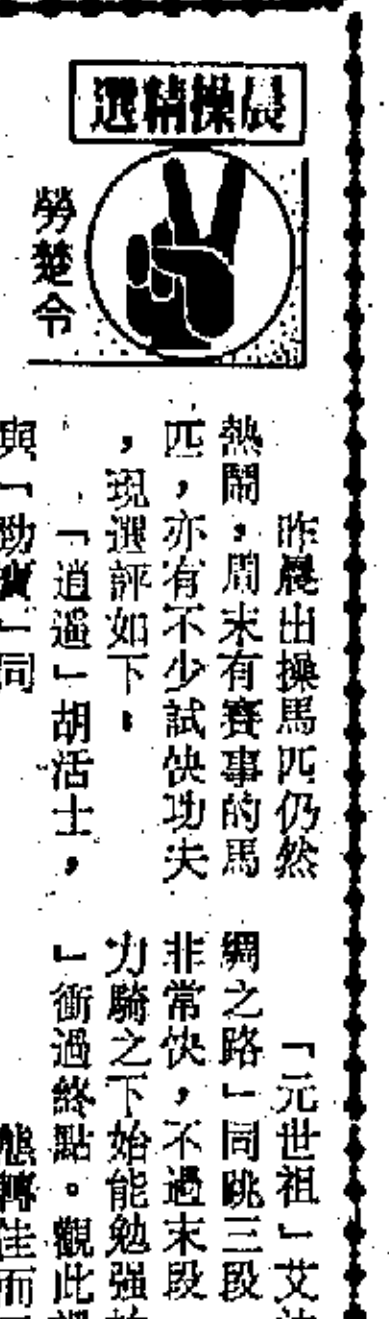 晨操精選
勞楚令
昨晨出操馬匹仍然
熱鬧，周末有賽事的馬
匹，亦有不少試快功夫
，現選評如下：
「逍遥」胡活士，
與「勁寶」同
「元世祖」艾
綢之路」同跳三段
非常快，不過末段
力騎之下始能勉强
」衝過終點。觀此
態轉佳而